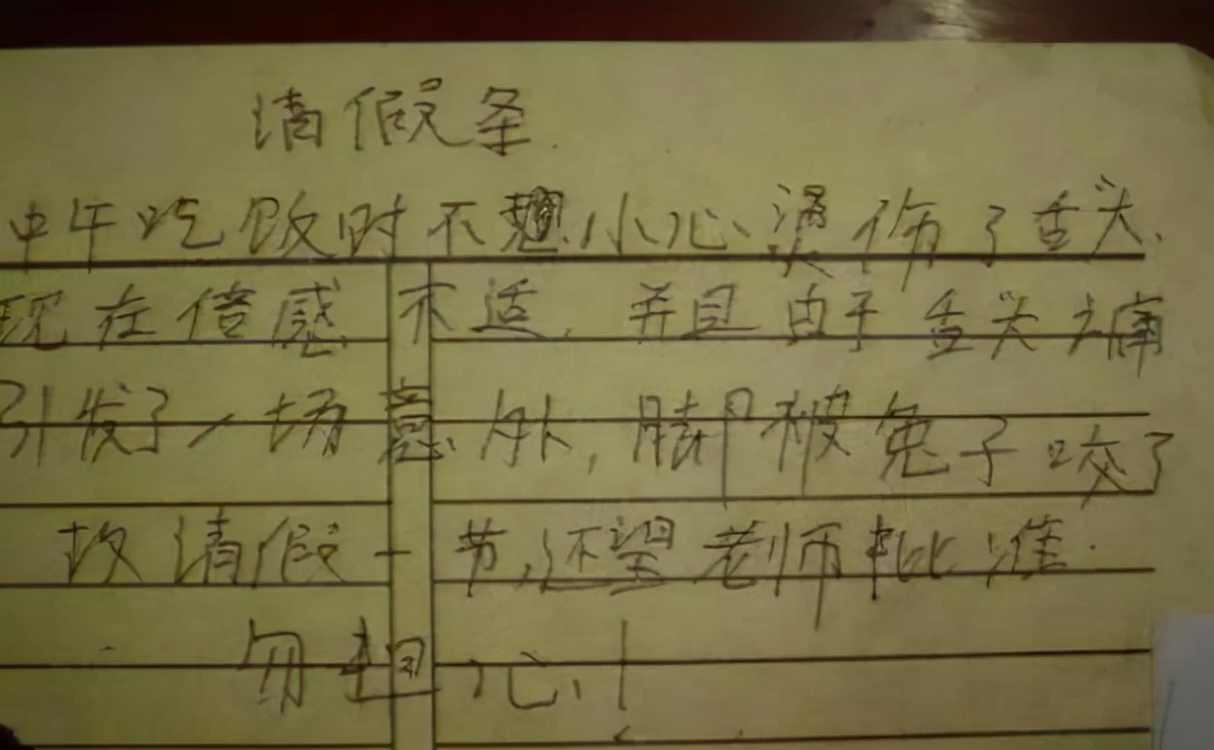 请假条.
中午吃饭时不小心烫伤了舌头.
现在倍感不适,并且由于舌头痛
引发了一场意外,脚被兔子咬了
故请假一节,还望老师批准.
勿担心!